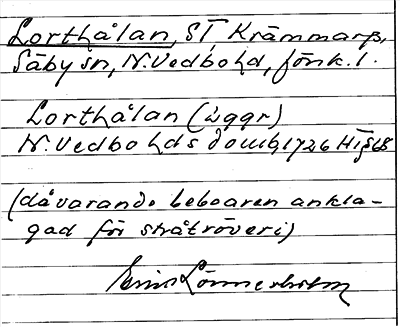 Lorthålan, St Krämmarp,
Säby sn, N. Vedbo hd, Jönk. l.
Lorthålan (äggr)
N. Vedbo hds domb, 1726 Ht § 68
(dåvarande beboaren ankla-
gad för stråtröveri)
Einar Lönnerholm